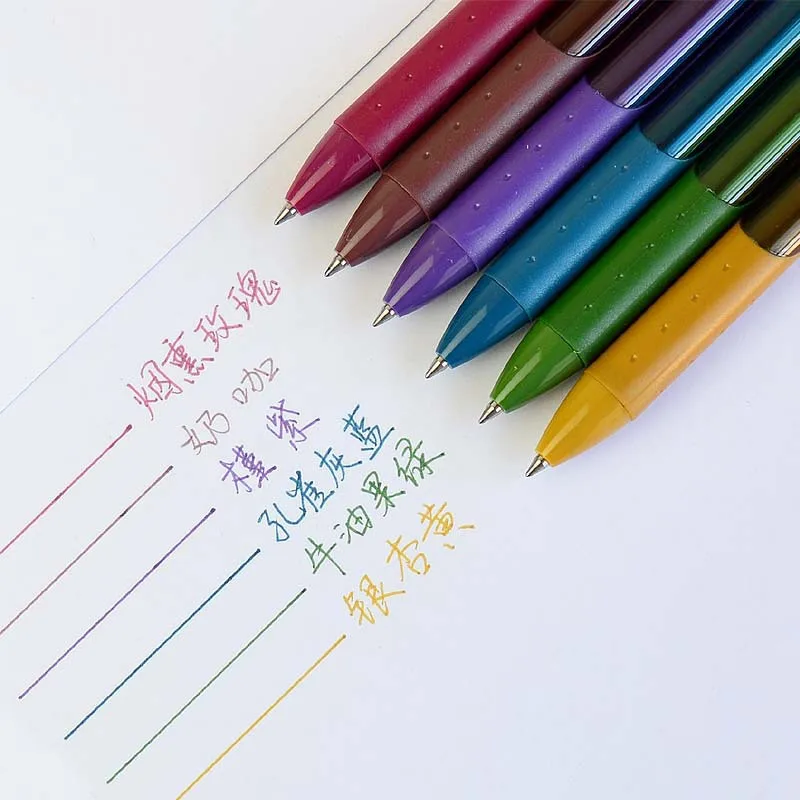 烟熏玫瑰
奶咖
槿紫
孔雀灰蓝
牛油果绿
银杏黄